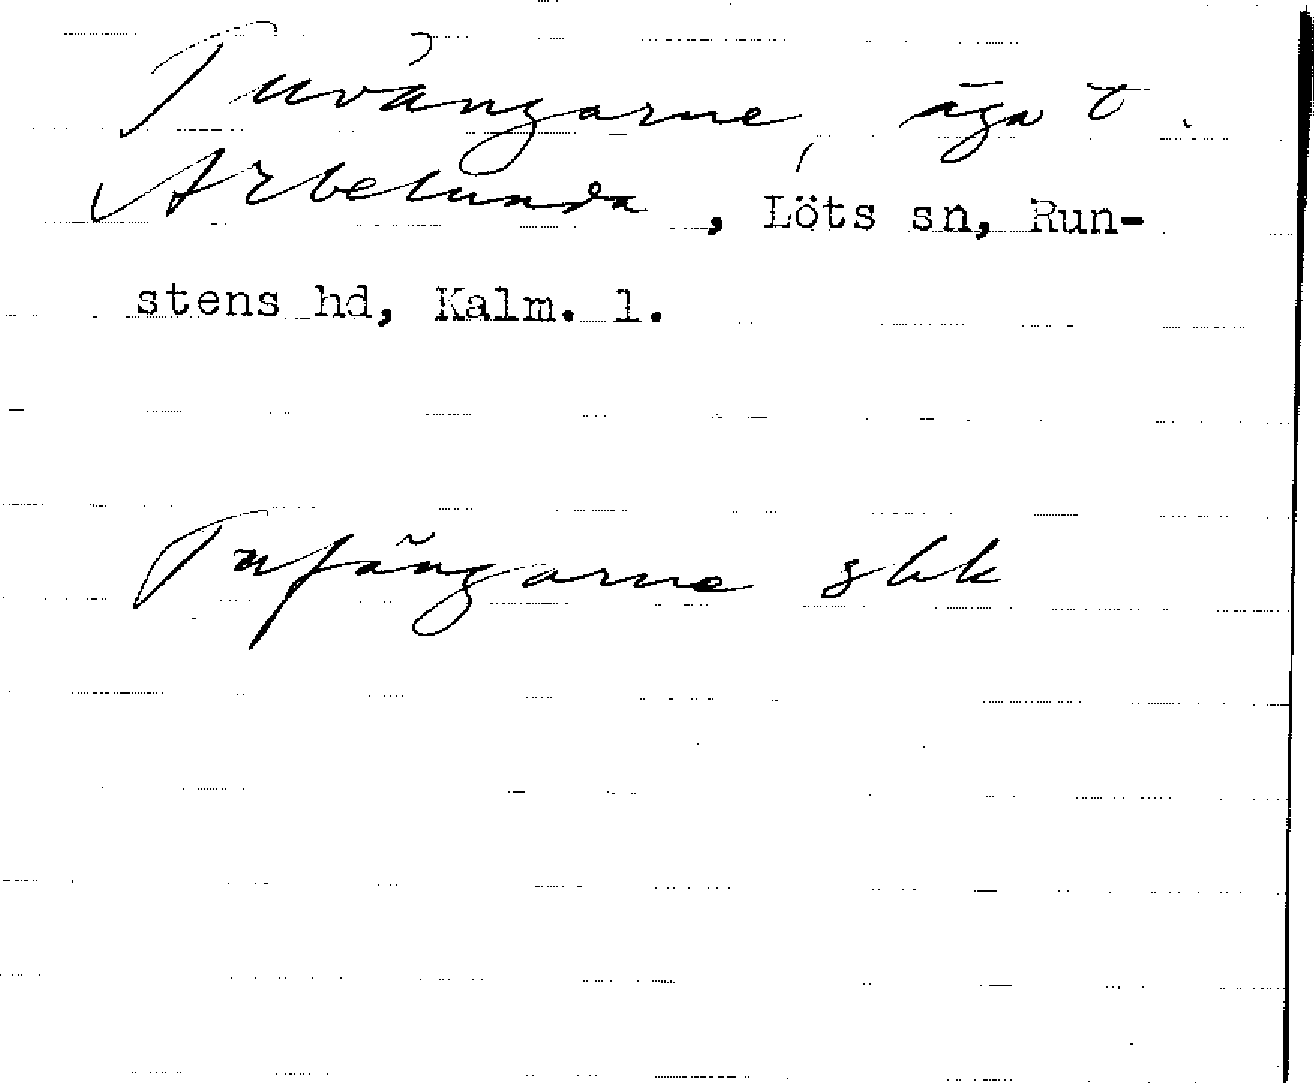 Tuvångarne, äga t.
Arbelunda, Löts sn, Run-
stens hd, Kalm. l.
Tufångarne shk